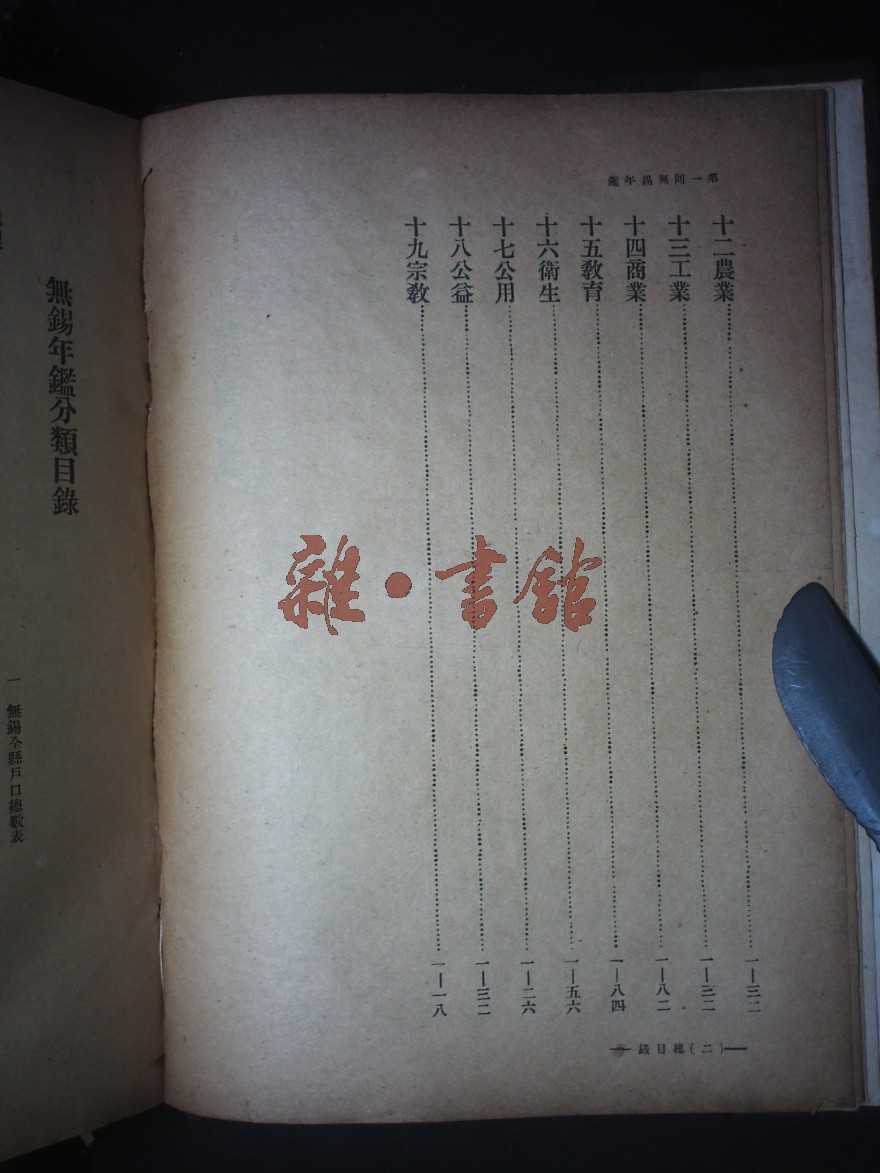 第一回無錫年鑑
十二農業……一—三二
十三工業……一—三二
十四商業……一—八二
十五教育……一—八四
十六衛生……一—五六
十七公用……一—二六
十八公益……一—三二
十九宗教……一—一八
總目錄(二)
雜·書館
無錫年鑑分類目錄
一 無錫全縣戶口總數表